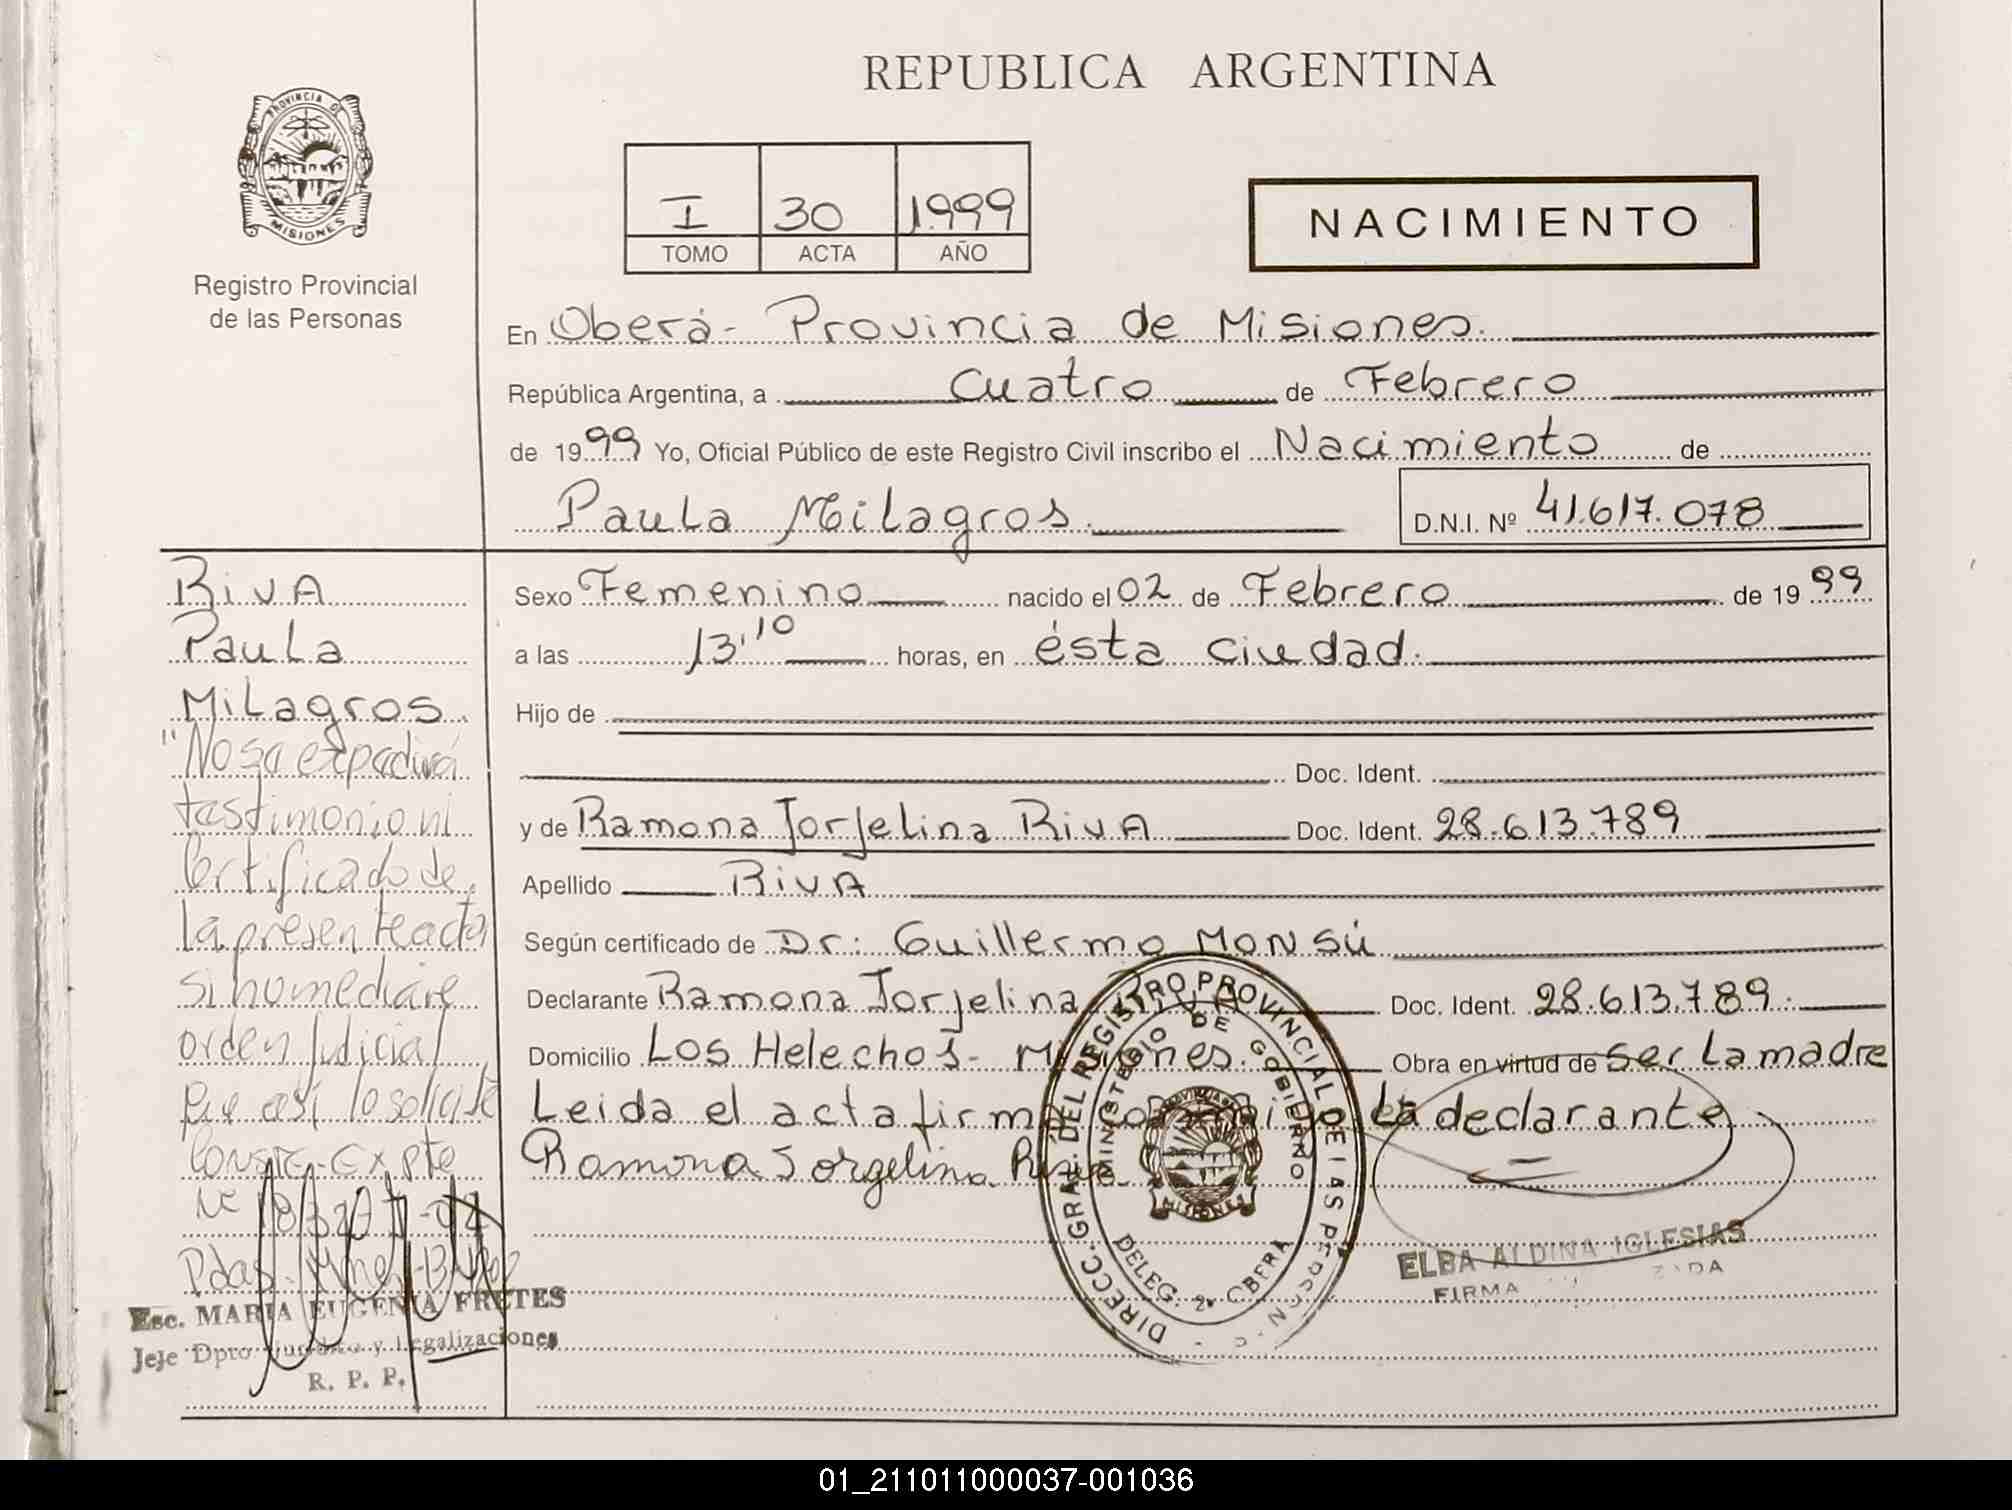 REPUBLICA ARGENTINA
PROVINCIA DE
MISIONES
Registro Provincial
de las Personas
I 30 1999
TOMO ACTA AÑO
NACIMIENTO
En Oberá - Provincia de Misiones.
República Argentina, a Cuatro de Febrero
de 1999 Yo, Oficial Público de este Registro Civil inscribo el Nacimiento de
Paula Milagros. D.N.I. Nº 41.617.078
Sexo Femenino nacido el 02 de Febrero de 1999
a las 13,10 horas, en ésta ciudad.
Hijo de
Doc. Ident.
y de Ramona Jorjelina RivA Doc. Ident. 28.613.789
Apellido RivA
Según certificado de Dr: Guillermo Monsú
Declarante Ramona Jorjelina Doc. Ident. 28.613.789.
Domicilio Los Helechos - Misiones. Obra en virtud de Ser La madre
Leida el acta firma conmigo La declarante
Ramona Sorgelina Riva
RivA
Paula
Milagros.
"No se expedirá
testimonio ni
Certificado de
la presente acta
si no mediare
orden judicial
que así lo solicite
Conste - Expte
Pdas.
Esc. MARIA EUGENIA FRETES
Jefe Dpto. Jurídico y Legalizaciones
R. P. P.
DIRECC. GRAL. DEL REGISTRO PROVINCIAL DE LAS PERSONAS
MINISTERIO DE GOBIERNO
PROVINCIA DE
MISIONES
DELEG. 2ª OBERA
ELBA ALDINA IGLESIAS
FIRMA
01_211011000037-001036